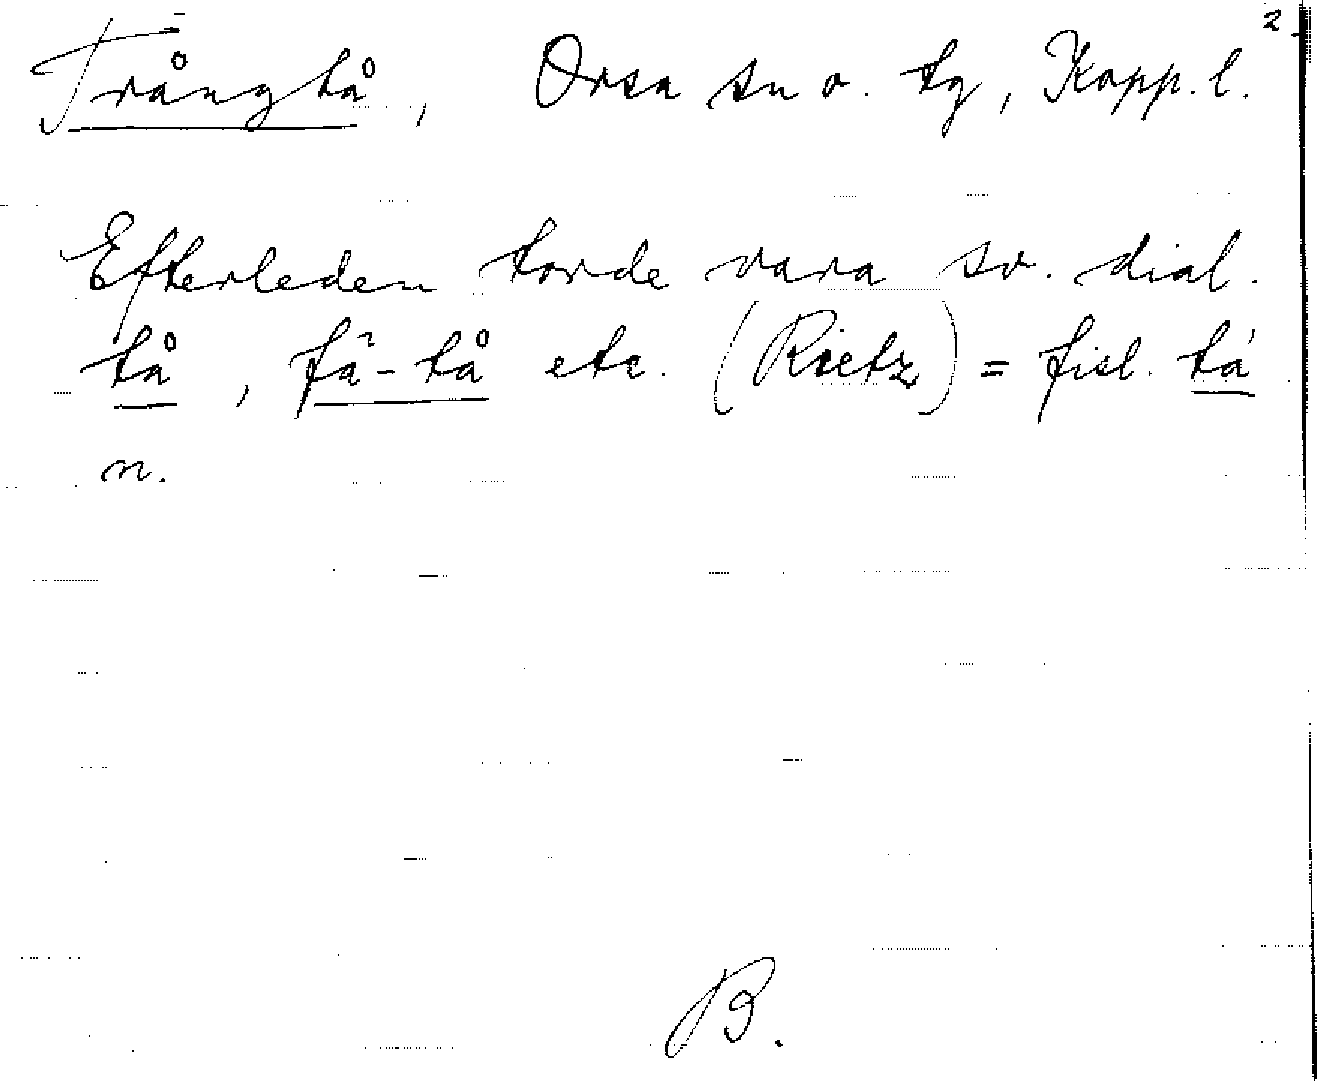 2
Trångtå, Orsa sn o. tg, Kopp. l.
Efterleden torde vara sv. dial.
tå, fä-tå etc. (Rietz) = fisl. tá
n.
B.